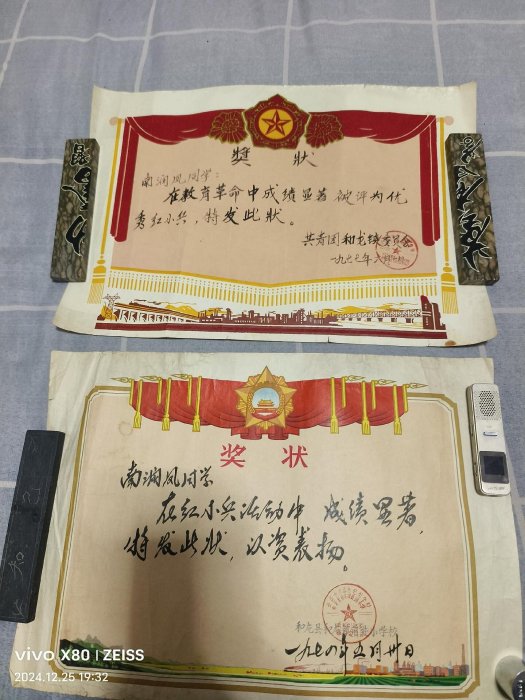 奬 状
南润凤同学：
在教育革命中成绩显著 被评为优
秀红小兵，特发此状。
共青团和龙镇委员会
一九七七年六
奖 状
南润凤同学
在红小兵活动中 成绩显著，
特发此状，以资表扬。
和龙县和龙 小学校
一九七〇年五月卅日
vivo X80 | ZEISS
2024.12.25 19:32